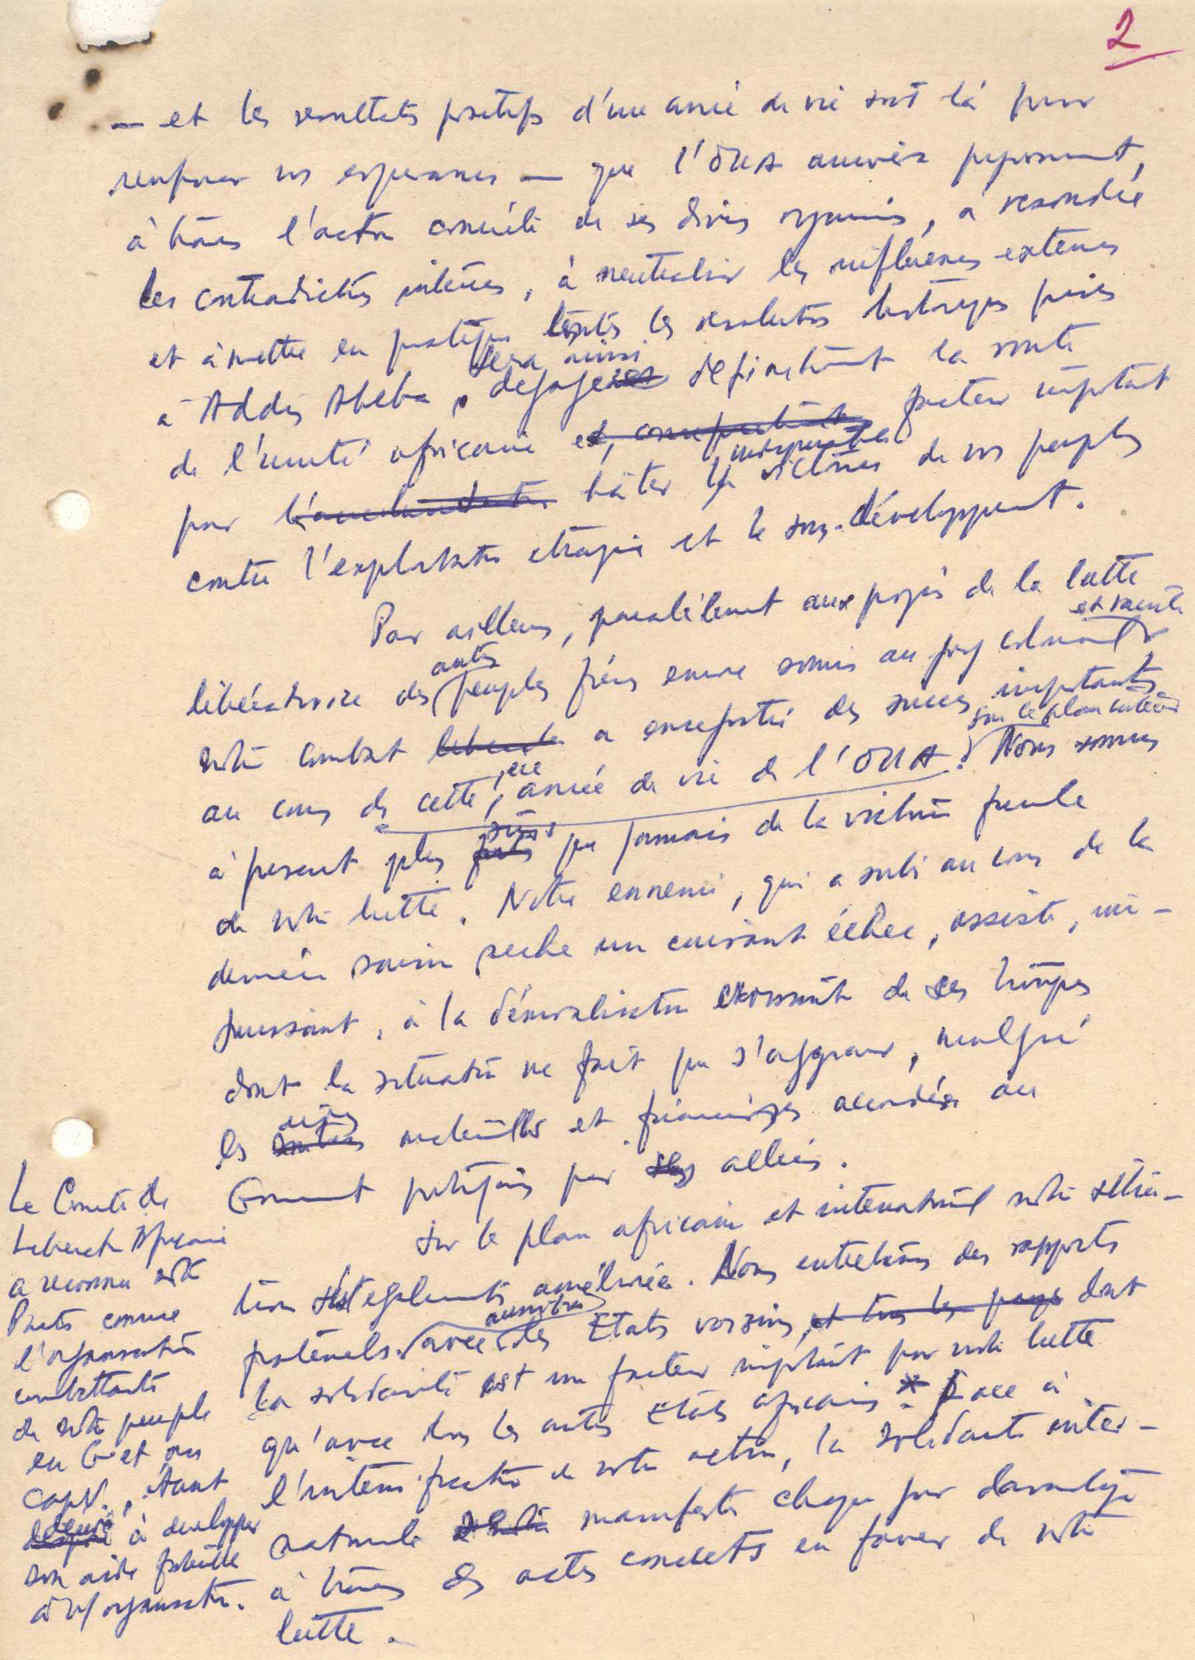 2
— et les resultats positifs d'une année de vie sont là pour
renforcer nos esperances — que l'OUA arrivera
à travers l'action concrète de ses divers organismes, à resoudre
les contradictions internes, à neutraliser les influences externes
et à mettre en pratique toutes les resolutions historiques prises
sera aussi
à Addis Abeba, degagera definitivement la route
de l'unité africaine et, facteur important
pour hâter les victoires de nos peuples
contre l'exploitation etrangère et le sous-développement.
Par ailleurs, parallèlement aux progrès de la lutte
et raciste
autres
libératrice des peuples frères encore soumis au joug colonial
notre combat a remporté des succes importants
sur le plan intérieur
au cours de cette 1ère année de vie de l'OUA. Nous sommes
sûrs
à present plus que jamais de la victoire finale
de notre lutte. Notre ennemi, qui a subi au cours de la
dernière saison seche un cuisant échec, assiste, im-
puissant, à la démoralisation croissante de ses troupes
dont la situation ne fait que s'aggraver, malgré
aides
les materielles et financières accordées au
Gouvernement portugais par ses alliés.
Sur le plan africain et international notre situa-
tion s'est egalement améliorée. Nous entretenons des rapports
fraternels avec des Etats voisins, et tous les pays dont
la solidarité est un facteur important pour notre lutte
qu'avec tous les autres Etats africains * . Face à
l'intensification de notre action, la solidarité inter-
nationale manifeste chaque jour davantage
à travers des actes concrets en faveur de notre
lutte.
Le Comité de
Liberation Africaine
a reconnu notre
Parti comme
l'organisation
combattante
de notre peuple
en G et aux
CapV., étant
decidé à developper
son aide fraternelle
à n/ organisation.